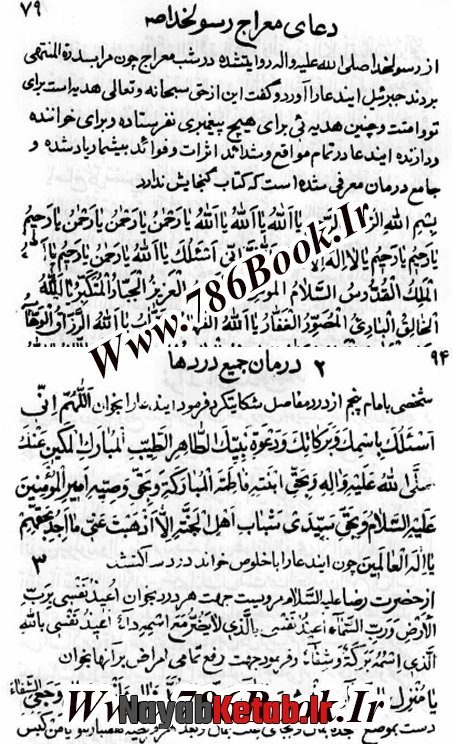 ۷۹
دعای معراج رسولخدا ص
از رسولخدا صلی الله علیه و اله روایت شده در شب معراج چون مرا بسدرة المنتهی
بردند جبرئیل ایندعا را آورد و گفت این از حق سبحانه و تعالی هدیه است برای
تو و امتت و چنین هدیه ئی برای هیچ پیغمبری نفرستاده و برای خواننده
و دارنده ایندعا در تمام مواقع و شدائد اثرات و فوائد بیشمار یاد شده و
جامع درمان معرفی شده است که کتاب گنجایش ندارد
بِسْمِ اللهِ یا اَللهُ یا اَللهُ یا اَللهُ یا رَحْمٰنُ یا رَحْمٰنُ یا رَحیمُ
یا رَحیمُ یا رَحیمُ یا لا اِلهَ اَسْئَلُكَ یا اَللهُ یا رَحْمٰنُ یا رَحیمُ
اَلْمَلِكُ الْقُدُّوسُ السَّلامُ الْعَزیزُ الْجَبّارُ الْمُتَكَبِّرُ یا اَللهُ
الْخالِقُ الْبارِئُ الْمُصَوِّرُ الْغَفّارُ یا اَللهُ یا اَللهُ الرَّزّاقُ
Www.786Book.Ir
۹۴
۲ درمان جمیع دردها
شخصی بامام پنجم از درد مفاصل شکایت کرد فرمود ایندعا را بخوان اَللّهُمَّ اِنّی
اَسْئَلُكَ بِاسْمِكَ وَ بَرَكاتِكَ وَ دَعْوَةِ نَبِیِّكَ الطّاهِرِ الطَّیِّبِ الْمُبارَكِ الْمَكینِ عِنْدَكَ
صَلَّی اللهُ عَلَیْهِ وَ الِهِ وَ بِحَقِّ ابْنَتِهِ فاطِمَةَ الْمُبارَكَةِ وَ بِحَقِّ وَصِیِّهِ اَمیرِ الْمُؤْمِنینَ
عَلَیْهِ السَّلامُ وَ بِحَقِّ سَیِّدَیْ شَبابِ اَهْلِ الْجَنَّةِ اِلّا اَذْهَبْتَ عَنّی ما اَجِدُ بِحَقِّهِمْ
یا اِلهَ الْعالَمینَ چون ایندعا را باخلوص خواند درد ساکت شد ۳
از حضرت رضا علیه السلام مرویست جهت هر درد بخوان اُعیذُ نَفْسی بِرَبِّ
الْاَرْضِ وَ رَبِّ السَّمآءِ اُعیذُ نَفْسی بِالَّذی لا یَضُرُّ مَعَ اسْمِهِ دآءٌ اُعیذُ نَفْسی بِاللهِ
الَّذی اِسْمُهُ بَرَكَةٌ وَ شِفآءٌ و فرمود جهت رفع تمامی امراض بر آنها بخوان
یا مُنْزِلَ الشِّفآءِ
Www.786Book.Ir
NayabKetab.ir
دست بموضع